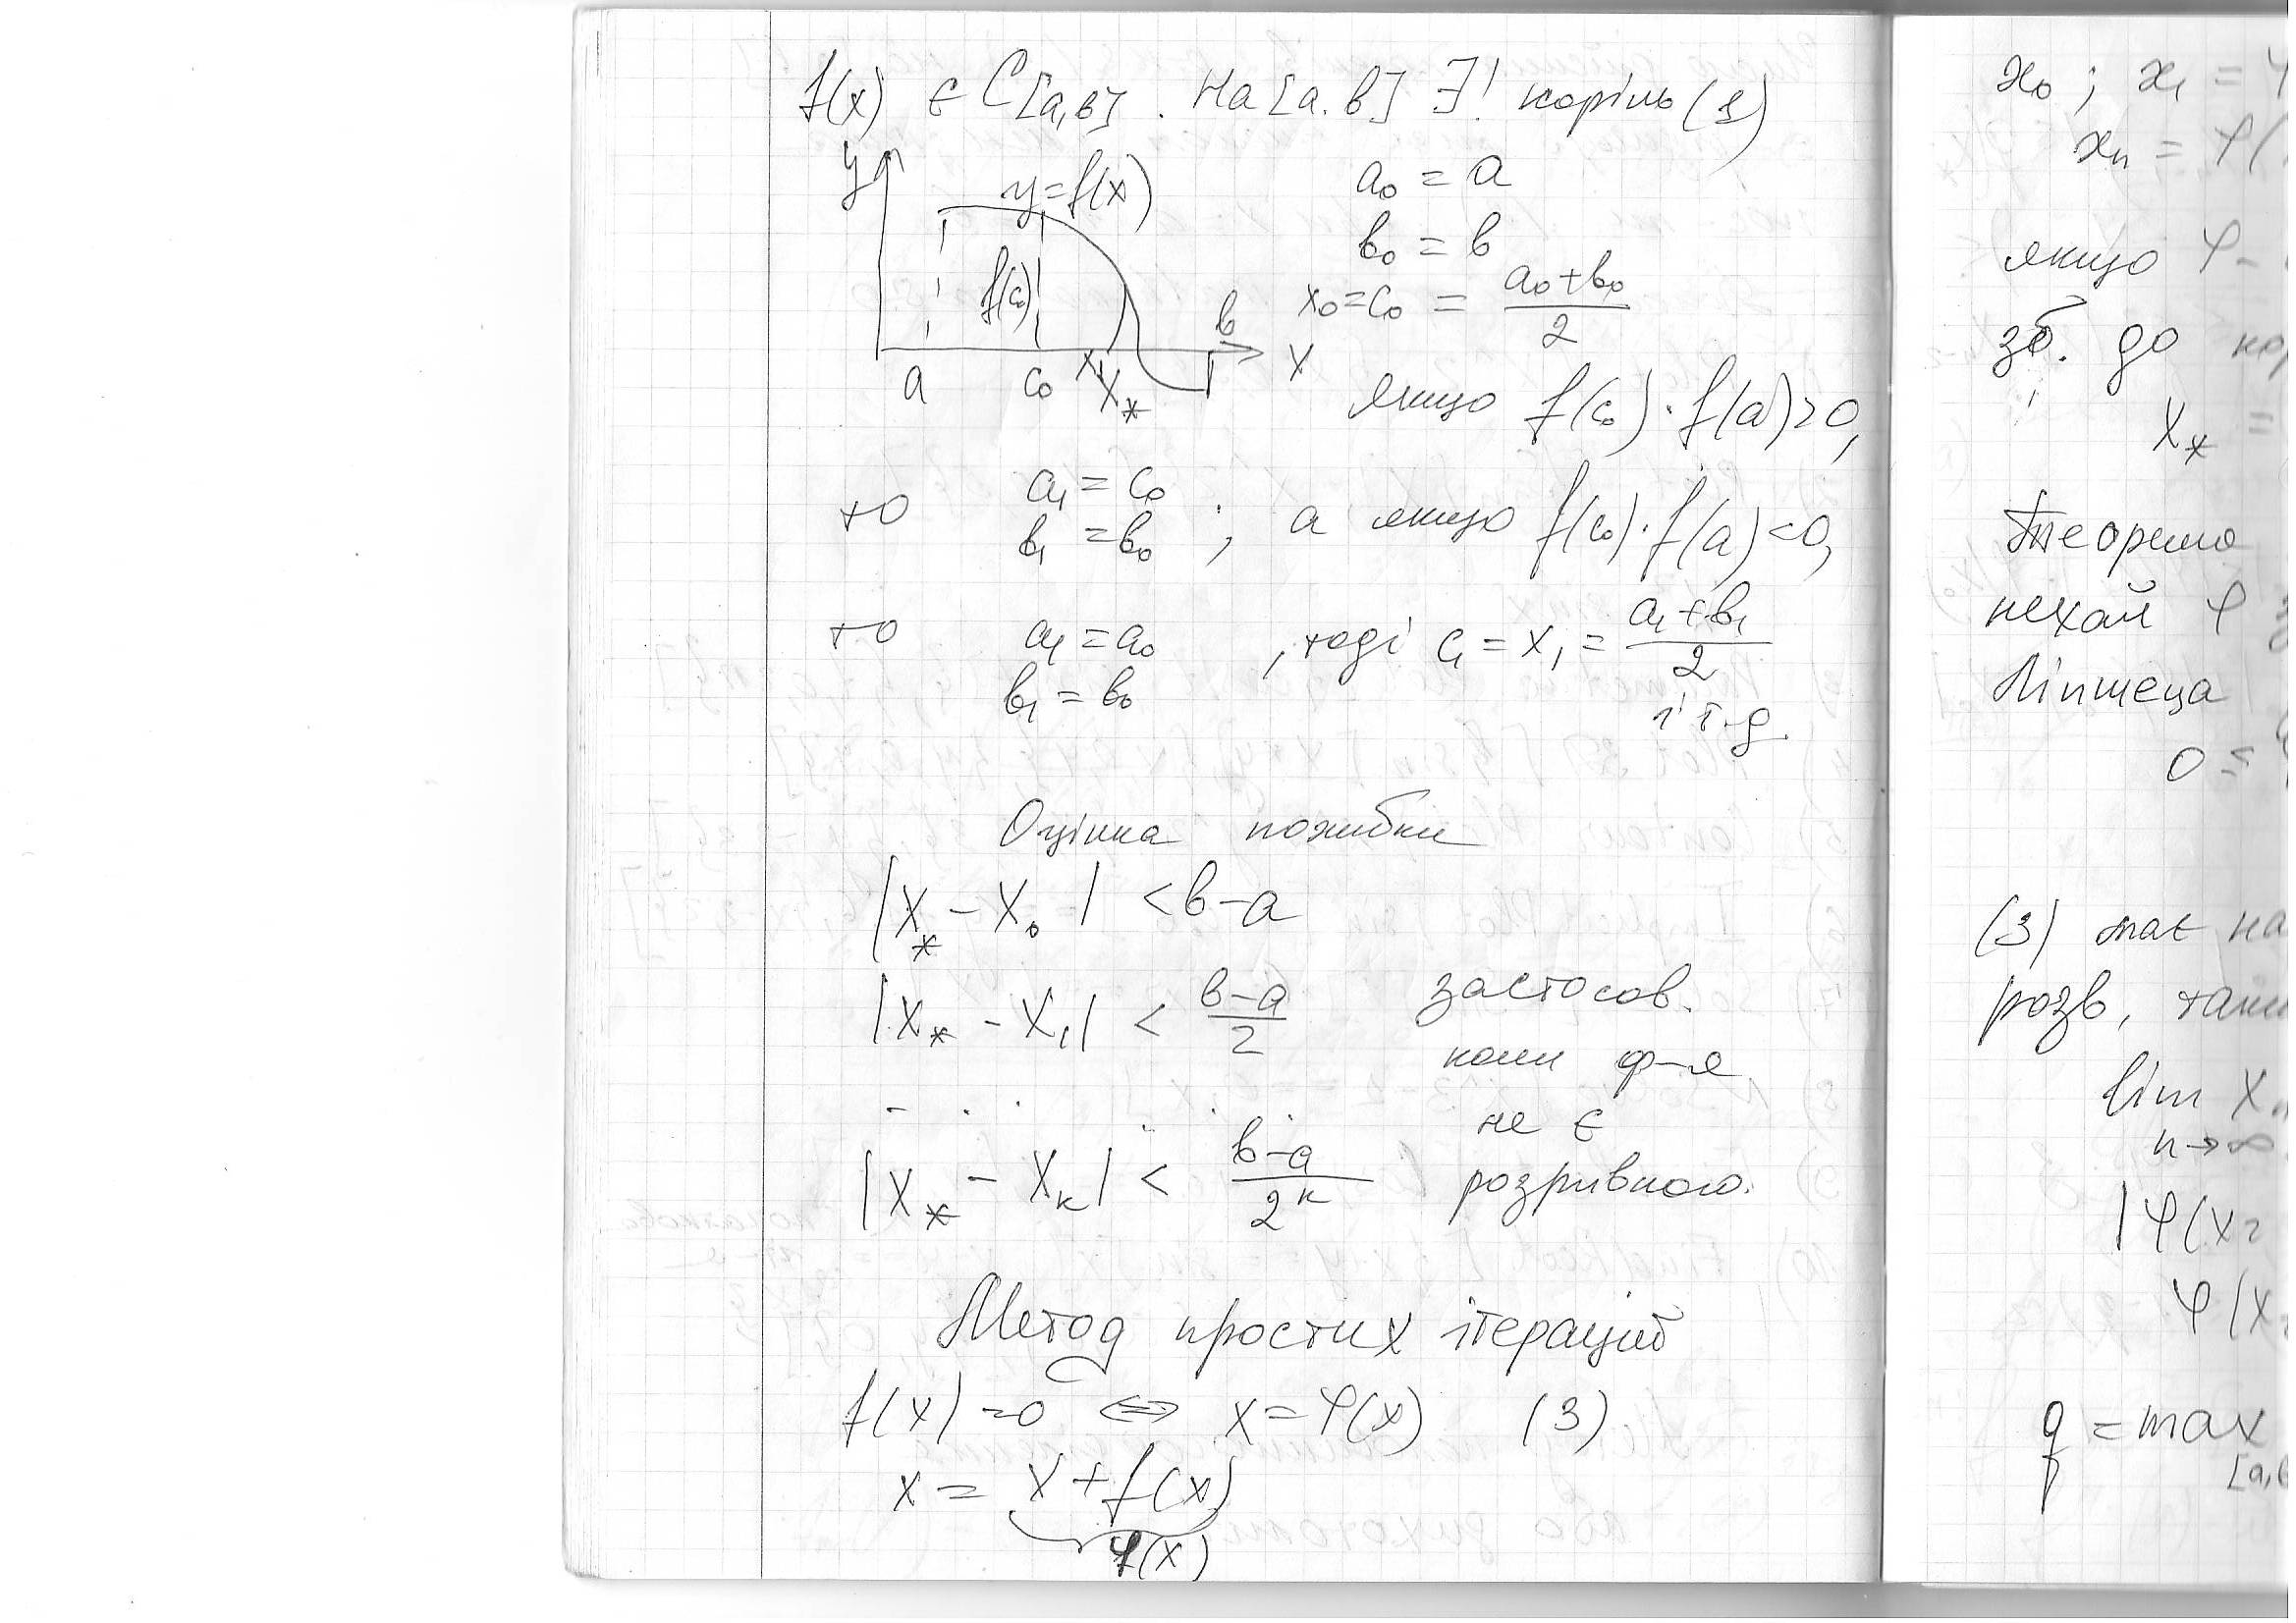 f(x) є C[a,в]. На [a.в] ∃! корінь (1)
y
y=f(x)
f(c₀)
в
a c₀ x₁ x_* x
a₀ = a
в₀ = в
x₀=c₀ = (a₀+в₀)/2
якщо f(c₀)·f(a)>0,
то a₁ = c₀
в₁ = в₀ ; а якщо f(c₀)·f(a)<0,
то a₁ = a₀
в₁ = в₀ , тоді c₁ = x₁ = (a₁+в₁)/2
і т.д.
Оцінка похибки
|x_* - x₀| < в-a
|x_* - x₁| < (в-a)/2
. . . . . .
|x_* - x_к| < (в-a)/2^к
застосов.
коли ф-я
не є
розривною.
Метод простих ітерацій
f(x)=0 ⇔ x=φ(x) (3)
x = x+f(x)
φ(x)
x₀ ; x₁ = φ
xₙ = φ(
якщо φ -
зб. до кор
x_* =
Теорема
нехай φ
Ліпшеца
0 ≤
(3) має на
розв, таки
lim x
n→∞
|φ(x₂
φ(x₂
q = max
[a,в